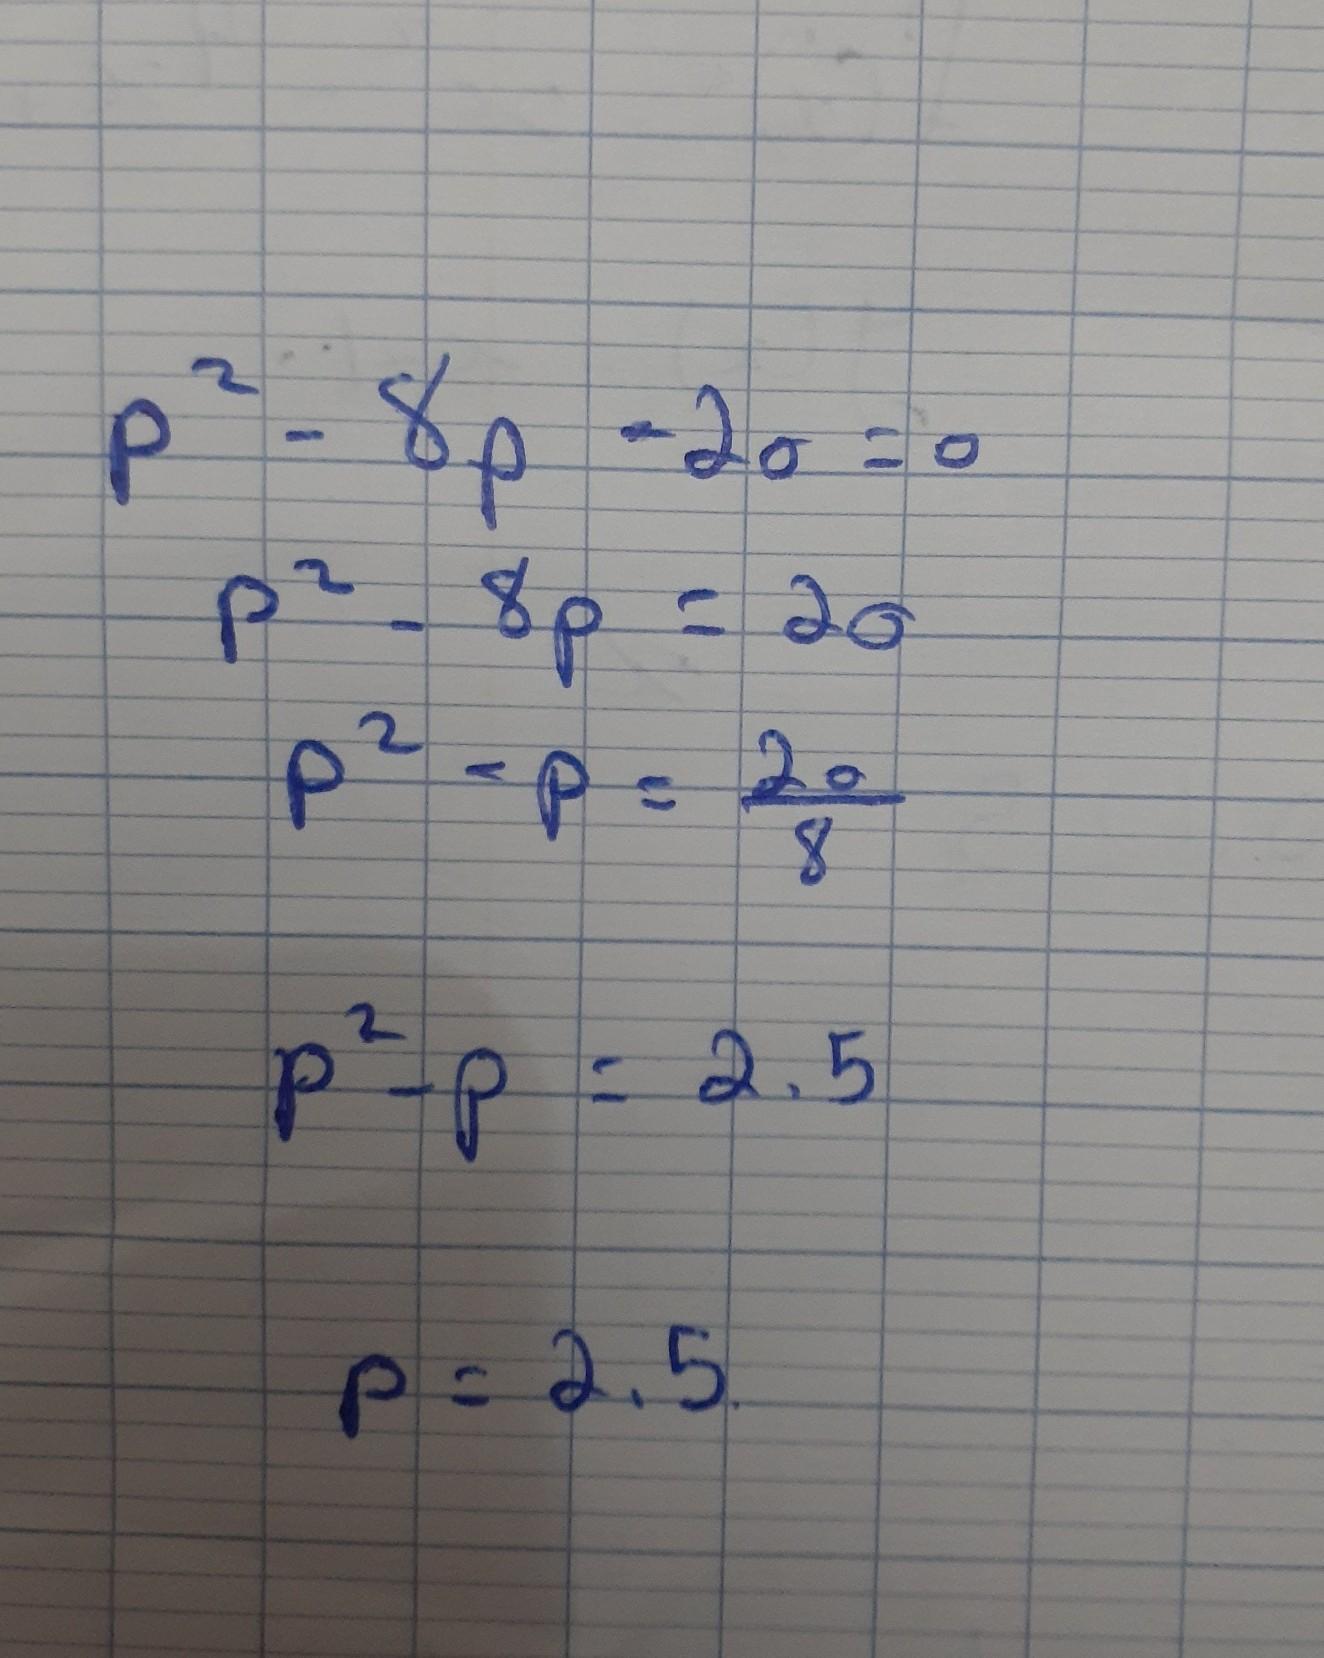 p² - 8p - 20 = 0
p² - 8p = 20
p² - p = 20/8
p² - p = 2.5
p = 2.5